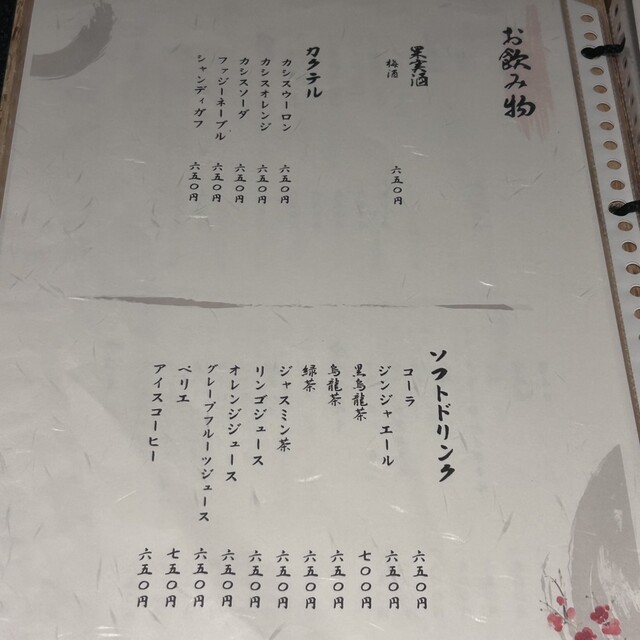 お飲み物
果実酒
梅酒 六五〇円
カクテル
カシスウーロン 六五〇円
カシスオレンジ 六五〇円
カシスソーダ 六五〇円
ファジーネーブル 六五〇円
シャンディガフ 六五〇円
ソフトドリンク
コーラ 六五〇円
ジンジャエール 六五〇円
黒烏龍茶 七〇〇円
烏龍茶 六五〇円
緑茶 六五〇円
ジャスミン茶 六五〇円
リンゴジュース 六五〇円
オレンジジュース 六五〇円
グレープフルーツジュース 六五〇円
ペリエ 七五〇円
アイスコーヒー 六五〇円